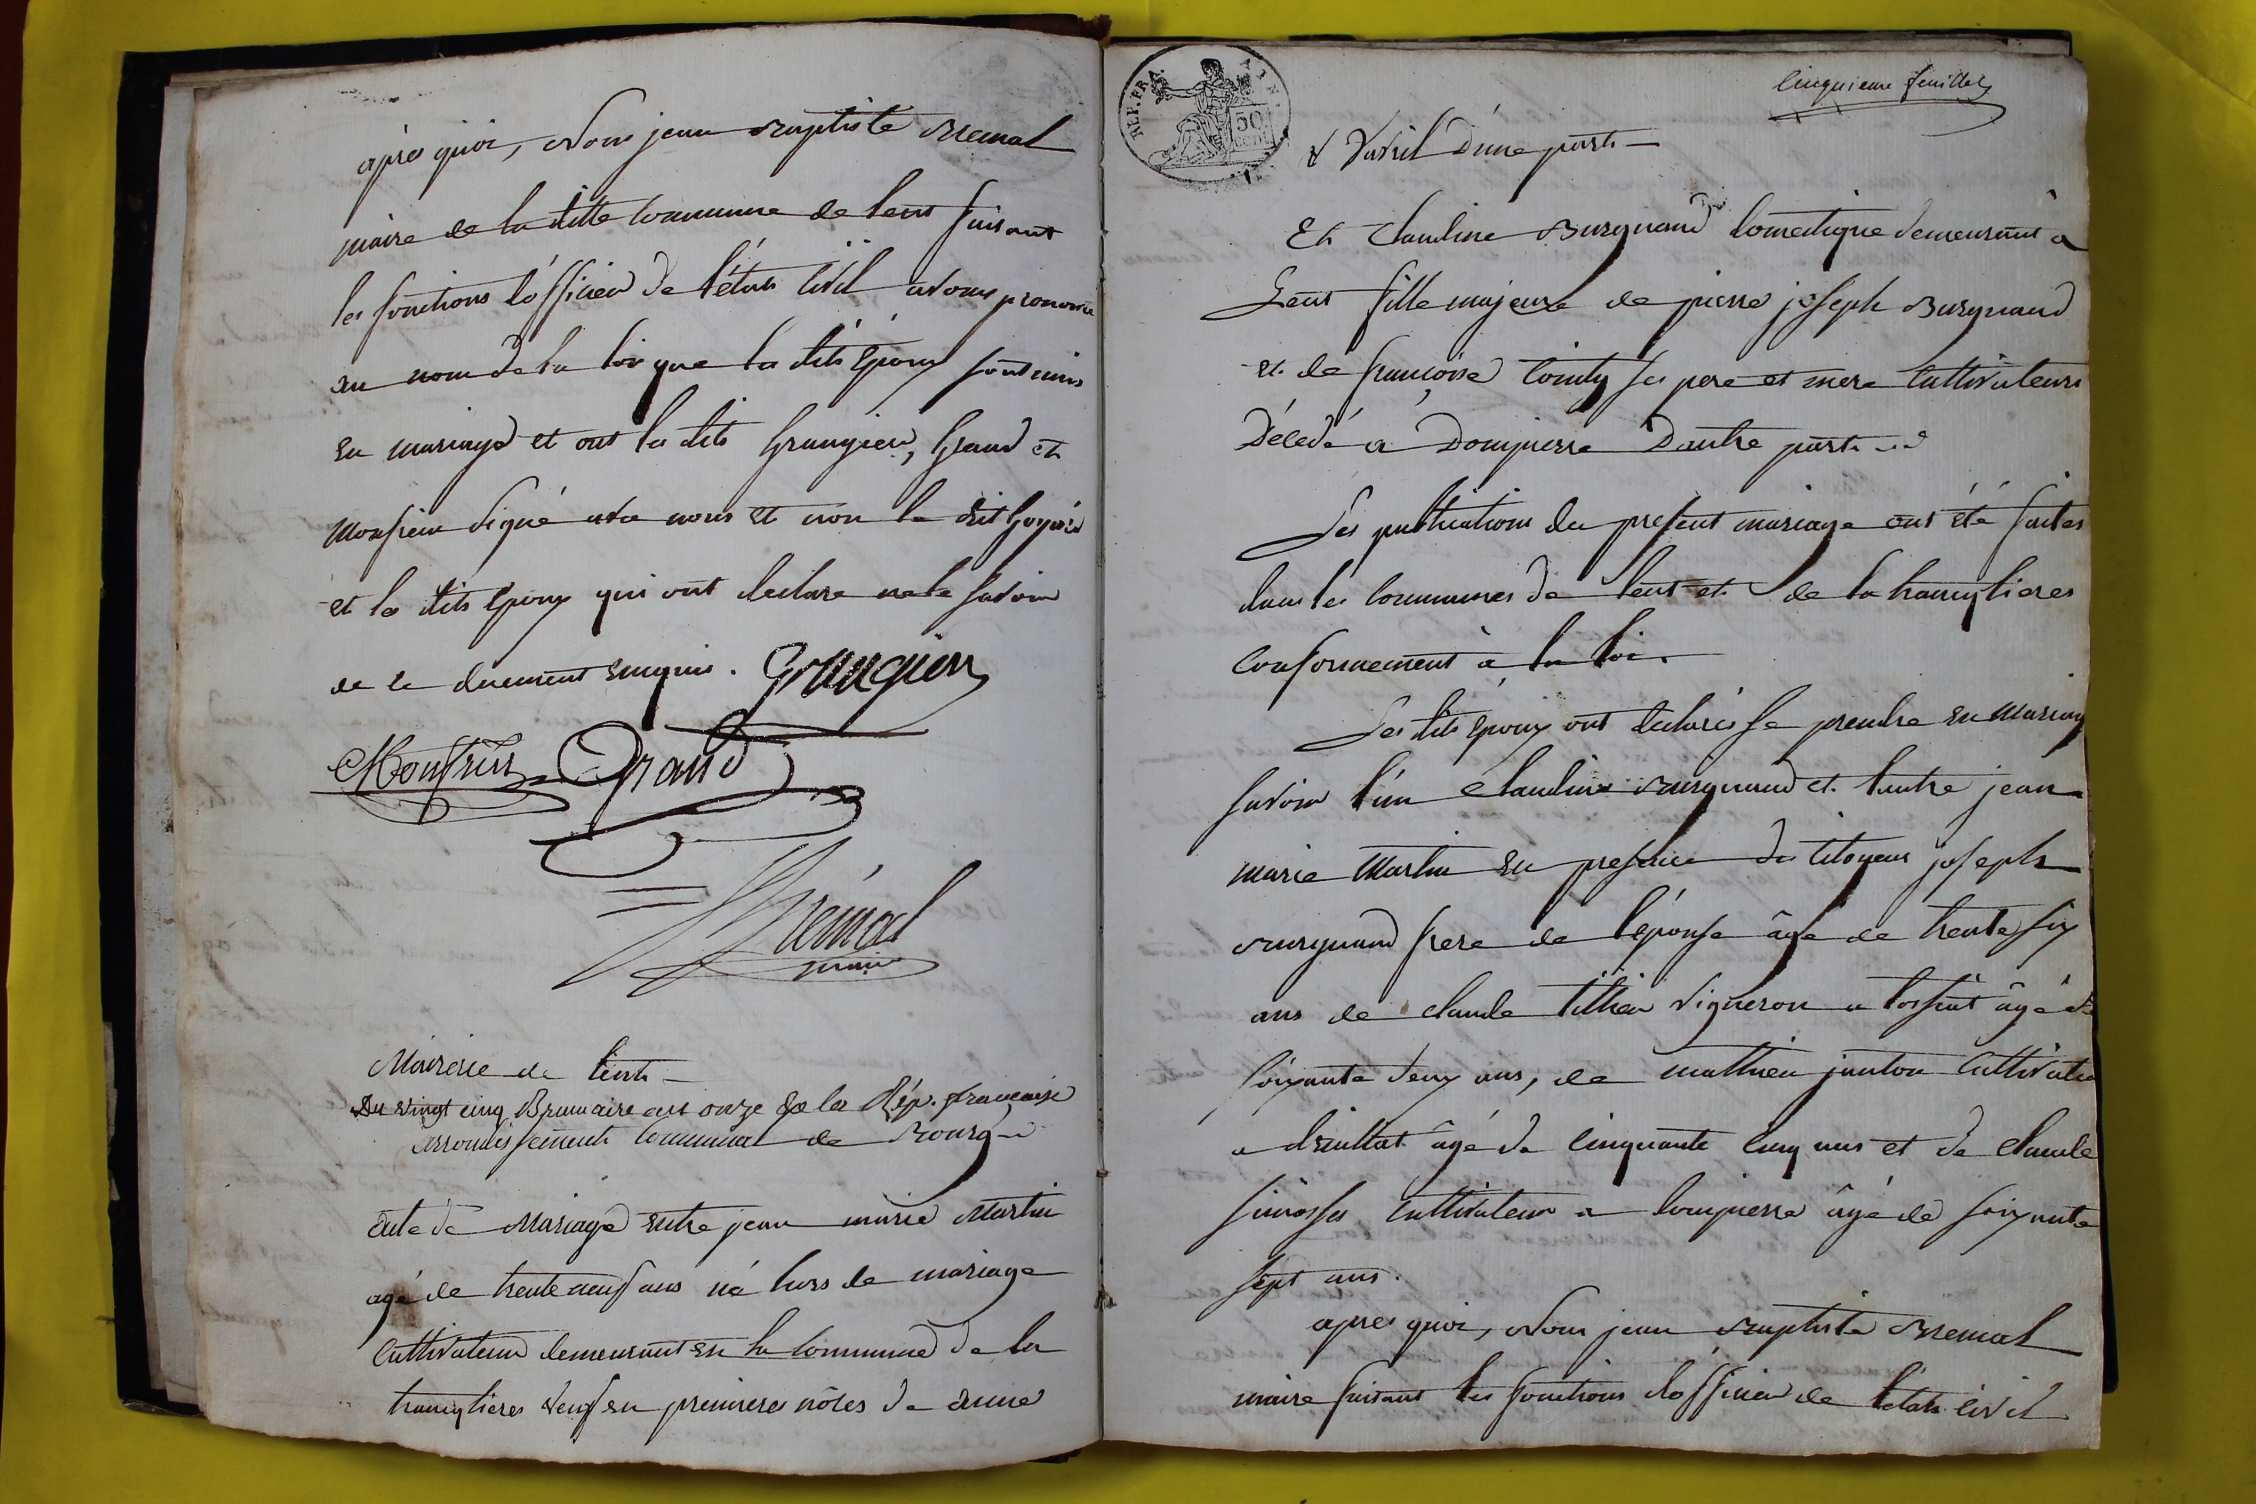 après quoi, Nous jean Baptiste Bremal
maire de la ditte Commune de lent faisant
les fonctions d'officier de l'état Civil avons prononcé
au nom de la loi que les dits Epoux sont unis
en mariage et ont les dits Grangier, Grand et
Monfrein signé avec nous et non le dit
et les dits Epoux qui ont declare ne le savoir
de ce duement enquis. Grangier
Grand
Bremal
maire
Mairerie de lent
Du vingt cinq Brumaire an onze de la Rép. française
arrondissement Communal de Bourg
acte de Mariage entre jean marie Martin
agé de trente neuf ans né hors de mariage
Cultivateur demeurant en la Commune de la
tranglieres veuf en premieres nôces de anne
REP. FRA.
50
CENT
Cinquieme feuillet
d'une part
Et Claudine Burgnand Domestique demeurant à
Lent fille majeure de pierre joseph Burgnand
et de françoise ses pere et mere Cultivateurs
Décédé a Dompierre D'autre part
Les publications du present mariage ont été faites
dans les Communes de lent et de la tranglieres
Conformement à la loi.
Les dits Epoux ont declarés se prendre en Mariage
savoir l'un Claudine Burgnand et l'autre jean
marie Martin en presence des Citoyens joseph
Burgnand frere de l'épouse âgé de trente six
ans de Claude vigneron a âgé de
soixante deux ans, de mathieu janton Cultivateur
a druillat âgé de Cinquante Cinq ans et de Claude
Cultivateur a Dompierre âgé de soixante
sept ans.
apres quoi, Nous jean Baptiste Bremal
maire faisant les fonctions d'officier de l'état Civil